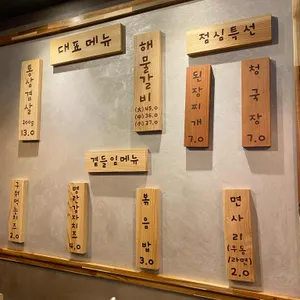 대표메뉴
통삼겹살
200g
13.0
해물갈비
(大) 45.0
(中) 36.0
(小) 27.0
점심특선
된장찌개
7.0
청국장
7.0
곁들임메뉴
구워먹는치즈
2.0
명란감자치즈
4.0
볶음밥
3.0
면사리
(우동/라면)
2.0